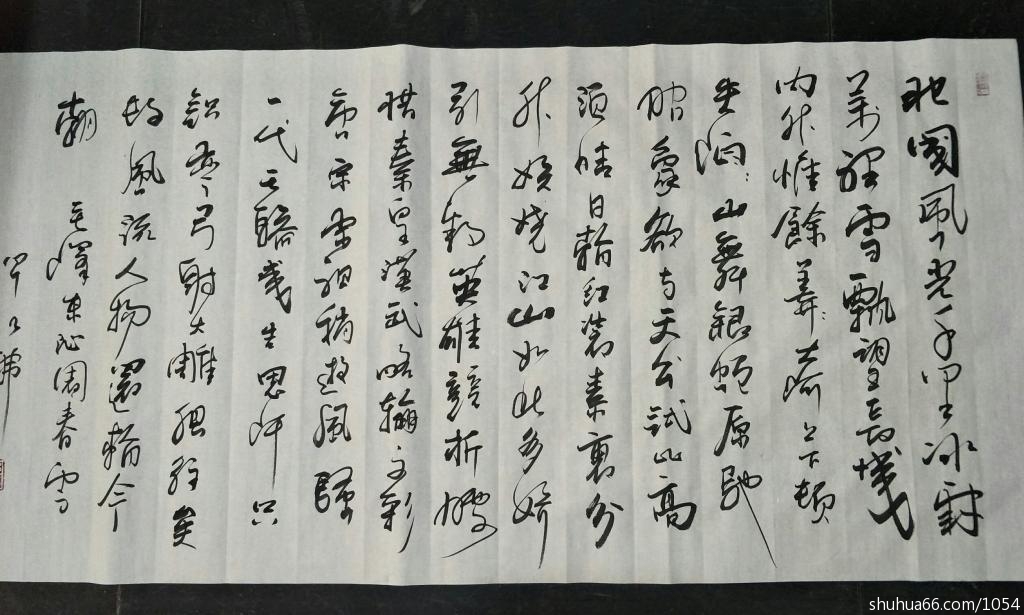 北國風光千里冰封
萬裡雪飄望長城
內外惟餘莽莽大河上下頓
失滔滔山舞銀蛇原馳
蠟象欲与天公試比高
須晴日看紅裝素裹分
外妖嬈江山如此多嬌
引無數英雄競折腰
惜秦皇漢武略輸文彩
唐宗宋祖稍遜風騷
一代天驕成吉思汗只
識彎弓射大雕俱往矣
數風流人物還看今
朝 毛澤東沁園春雪
shuhua66.com/1054